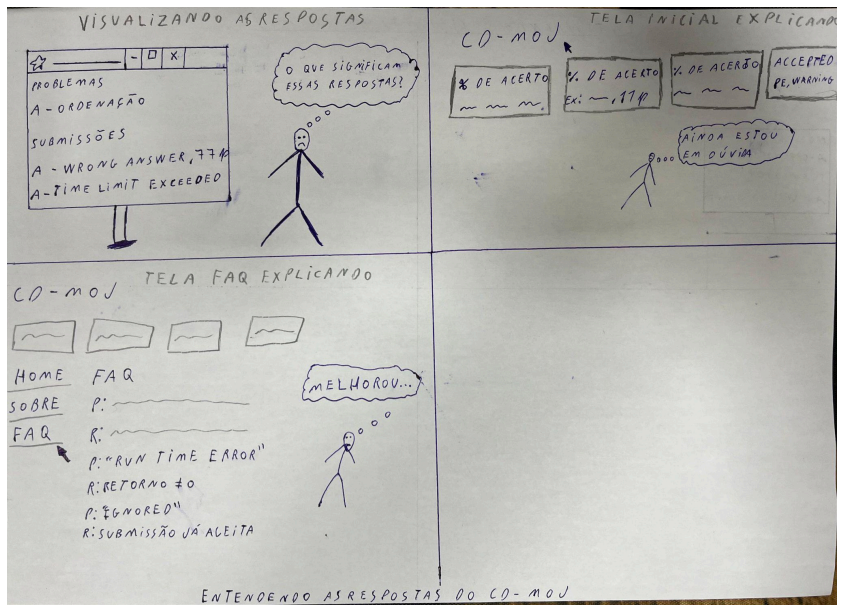 VISUALIZANDO AS RESPOSTAS
- □ X
PROBLEMAS
A - ORDENAÇÃO
SUBMISSÕES
A - WRONG ANSWER, 77p
A - TIME LIMIT EXCEEDED
O QUE SIGNIFICAM
ESSAS RESPOSTAS?
TELA INICIAL EXPLICANDO
CD-MOJ
% DE ACERTO
% DE ACERTO
Ex: , 77p
% DE ACERTO
ACCEPTED
PE, WARNING
AINDA ESTOU
EM DÚVIDA
TELA FAQ EXPLICANDO
CD-MOJ
HOME
SOBRE
FAQ
FAQ
P:
R:
P: "RUN TIME ERROR"
R: RETORNO ≠0
P: "IGNORED"
R: SUBMISSÃO JÁ ACEITA
MELHOROU...
ENTENDENDO AS RESPOSTAS DO CD-MOJ